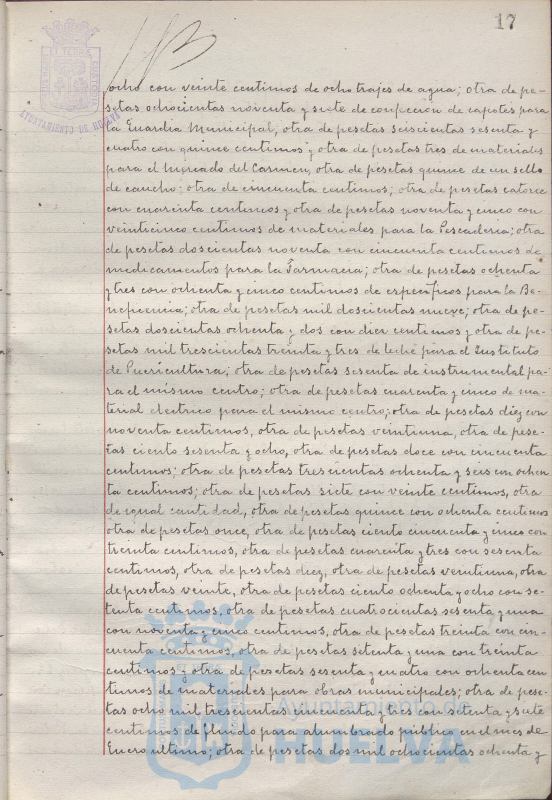 17
AYUNTAMIENTO DE HUELVA
ocho con veinte centimos de ocho trajes de agua; otra de pe-
setas ochocientas noventa y siete de confección de capotes para
la Guardia Municipal; otra de pesetas seiscientas sesenta y
cuatro con quince centimos y otra de pesetas tres de materiales
para el Mercado del Carmen, otra de pesetas quince de un sello
de caucho; otra de cincuenta centimos; otra de pesetas catorce
con cuarenta centimos y otra de pesetas noventa y cinco con
veinticinco centimos de materiales para la Pescadería; otra
de pesetas doscientas noventa con cincuenta centimos de
medicamentos para la Farmacia; otra de pesetas ochenta
y tres con ochenta y cinco centimos de específicos para la Be-
neficencia; otra de pesetas mil doscientas nueve; otra de pe-
setas doscientas ochenta y dos con diez centimos y otra de pe-
setas mil trescientas treinta y tres de leche para el Instituto
de Puericultura; otra de pesetas sesenta de instrumental pa-
ra el mismo centro; otra de pesetas cuarenta y cinco de ma-
terial electrico para el mismo centro; otra de pesetas diez con
noventa centimos, otra de pesetas veintiuna, otra de pese-
tas ciento sesenta y ocho, otra de pesetas doce con cincuenta
centimos; otra de pesetas trescientas ochenta y seis con ochen
ta centimos; otra de pesetas siete con veinte centimos, otra
de igual cantidad, otra de pesetas quince con ochenta centimos
otra de pesetas once, otra de pesetas ciento cincuenta y cinco con
treinta centimos, otra de pesetas cuarenta y tres con sesenta
centimos, otra de pesetas diez, otra de pesetas veintiuna, otra
de pesetas veinte, otra de pesetas ciento ochenta y ocho con se-
tenta centimos, otra de pesetas cuatrocientas sesenta y una
con noventa y cinco centimos, otra de pesetas treinta con cin-
cuenta centimos, otra de pesetas setenta y una con treinta
centimos y otra de pesetas sesenta y cuatro con ochenta cen
timos de materiales para obras municipales; otra de pese-
tas ocho mil trescientas cincuenta y tres con setenta y siete
centimos de fluido para alumbrado público en el mes de
Enero ultimo; otra de pesetas dos mil ochocientas ochenta y
Ayuntamiento de
HUELVA